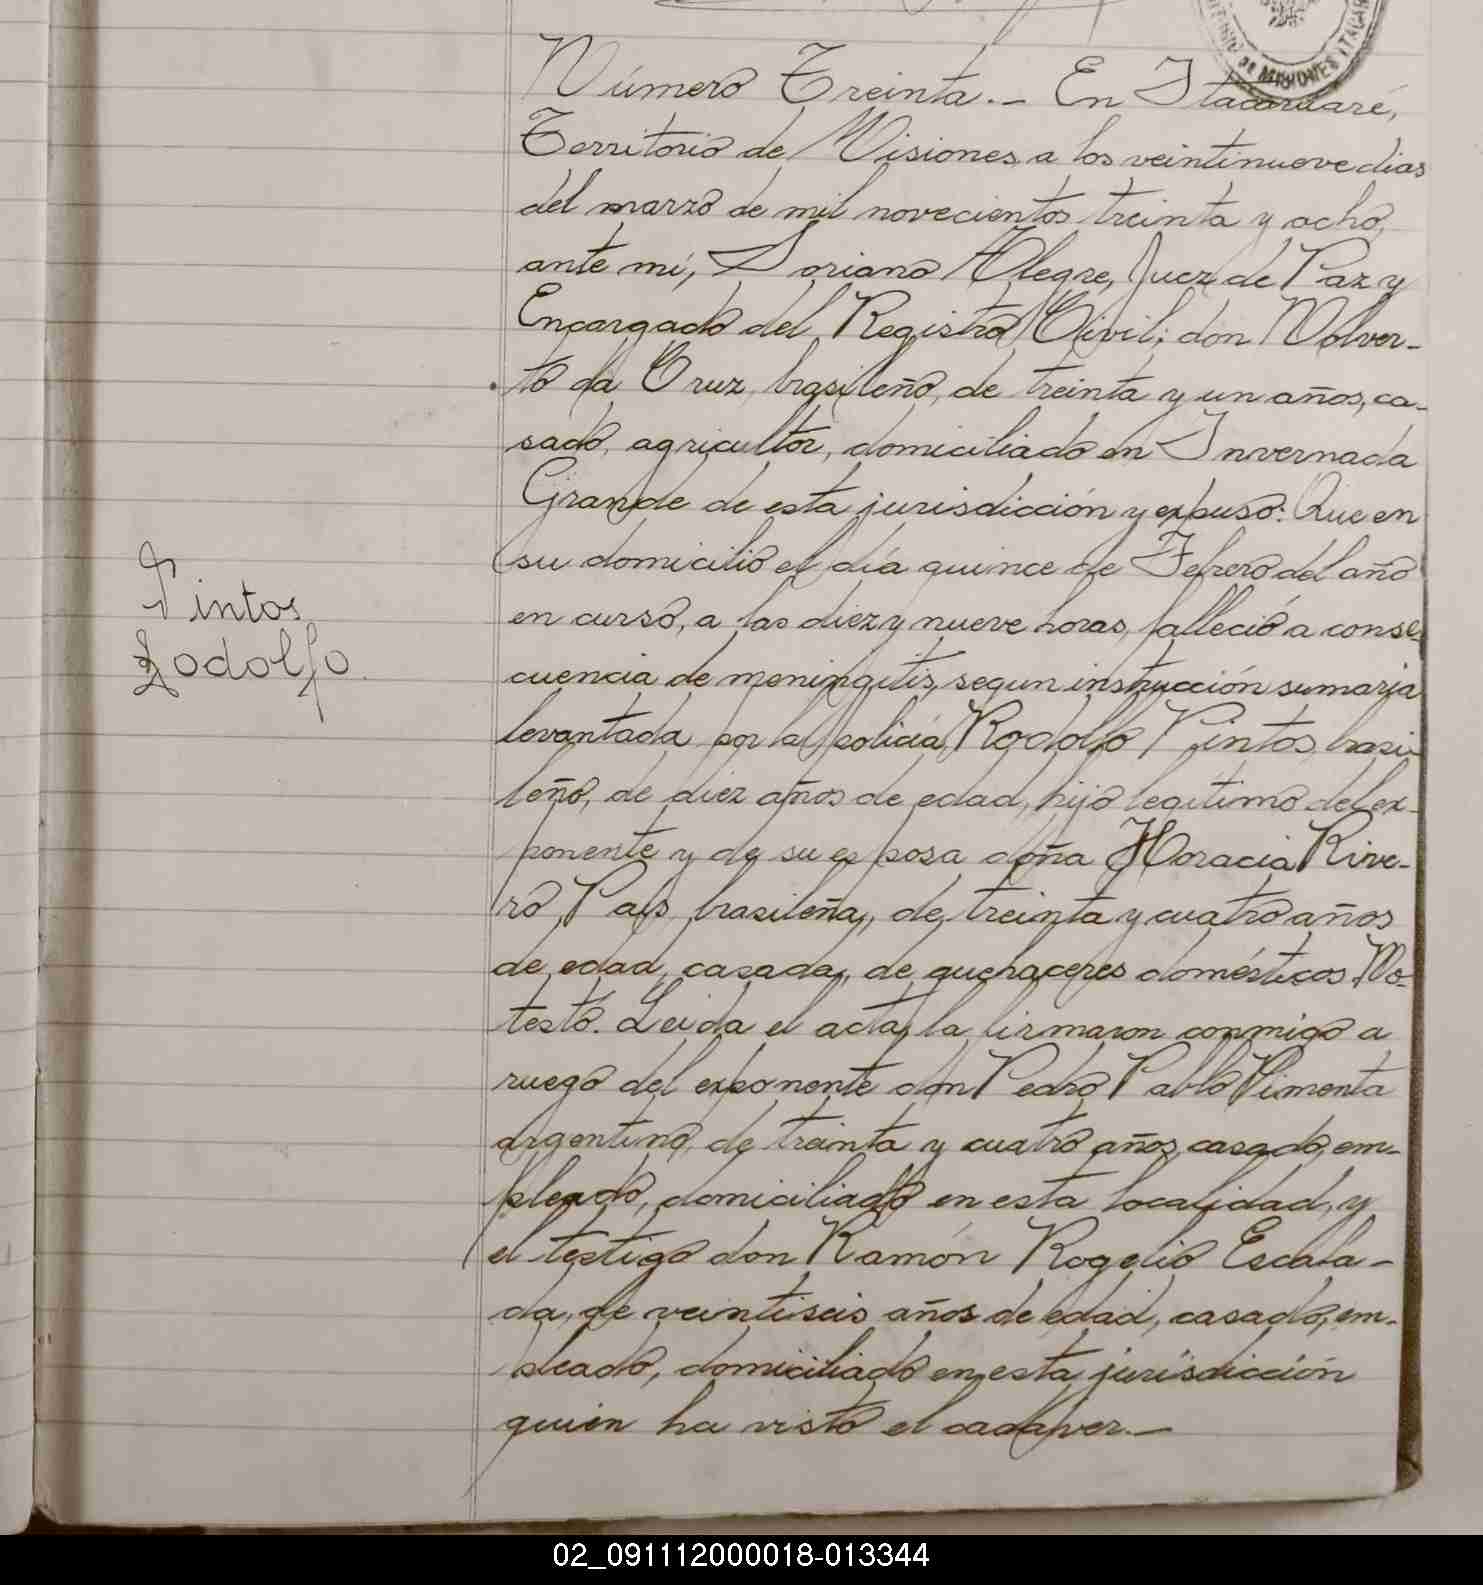 DE MISIONES ITACAR
Número Treinta.- En Itacaruaré,
Territorio de Misiones, a los veintinueve dias
del marzo de mil novecientos treinta y ocho,
ante mi, Soriano Alegre, Juez de Paz y
Encargado del Registro Civil; don Wolver-
to da Cruz, brasileño, de treinta y un años, ca-
sado, agricultor, domiciliado en Invernada
Grande de esta jurisdicción y expuso: Que en
su domicilio el día quince de Febrero del año
en curso, a las diez y nueve horas, falleció a conse-
Pintos
Rodolfo.
cuencia de meningitis, segun instrucción sumaria
levantada por la policiá, Rodolfo Pintos, brasi-
leño, de diez años de edad, hijo legitimo del ex-
ponente y de su esposa doña Horacia Rive-
ro Pais, brasileña, de treinta y cuatro años
de edad, casada, de quehaceres domésticos. No
testó. Leida el acta, la firmaron conmigo a
ruego del exponente don Pedro Pablo Pimenta
argentino, de treinta y cuatro años, casado, em-
pleado, domiciliado en esta localidad, y
el testigo don Ramón Rogelio Escala-
da, de veintiseis años de edad, casado, em-
pleado, domiciliado en esta jurisdicción
quien ha visto el cadaver.-
02_091112000018-013344